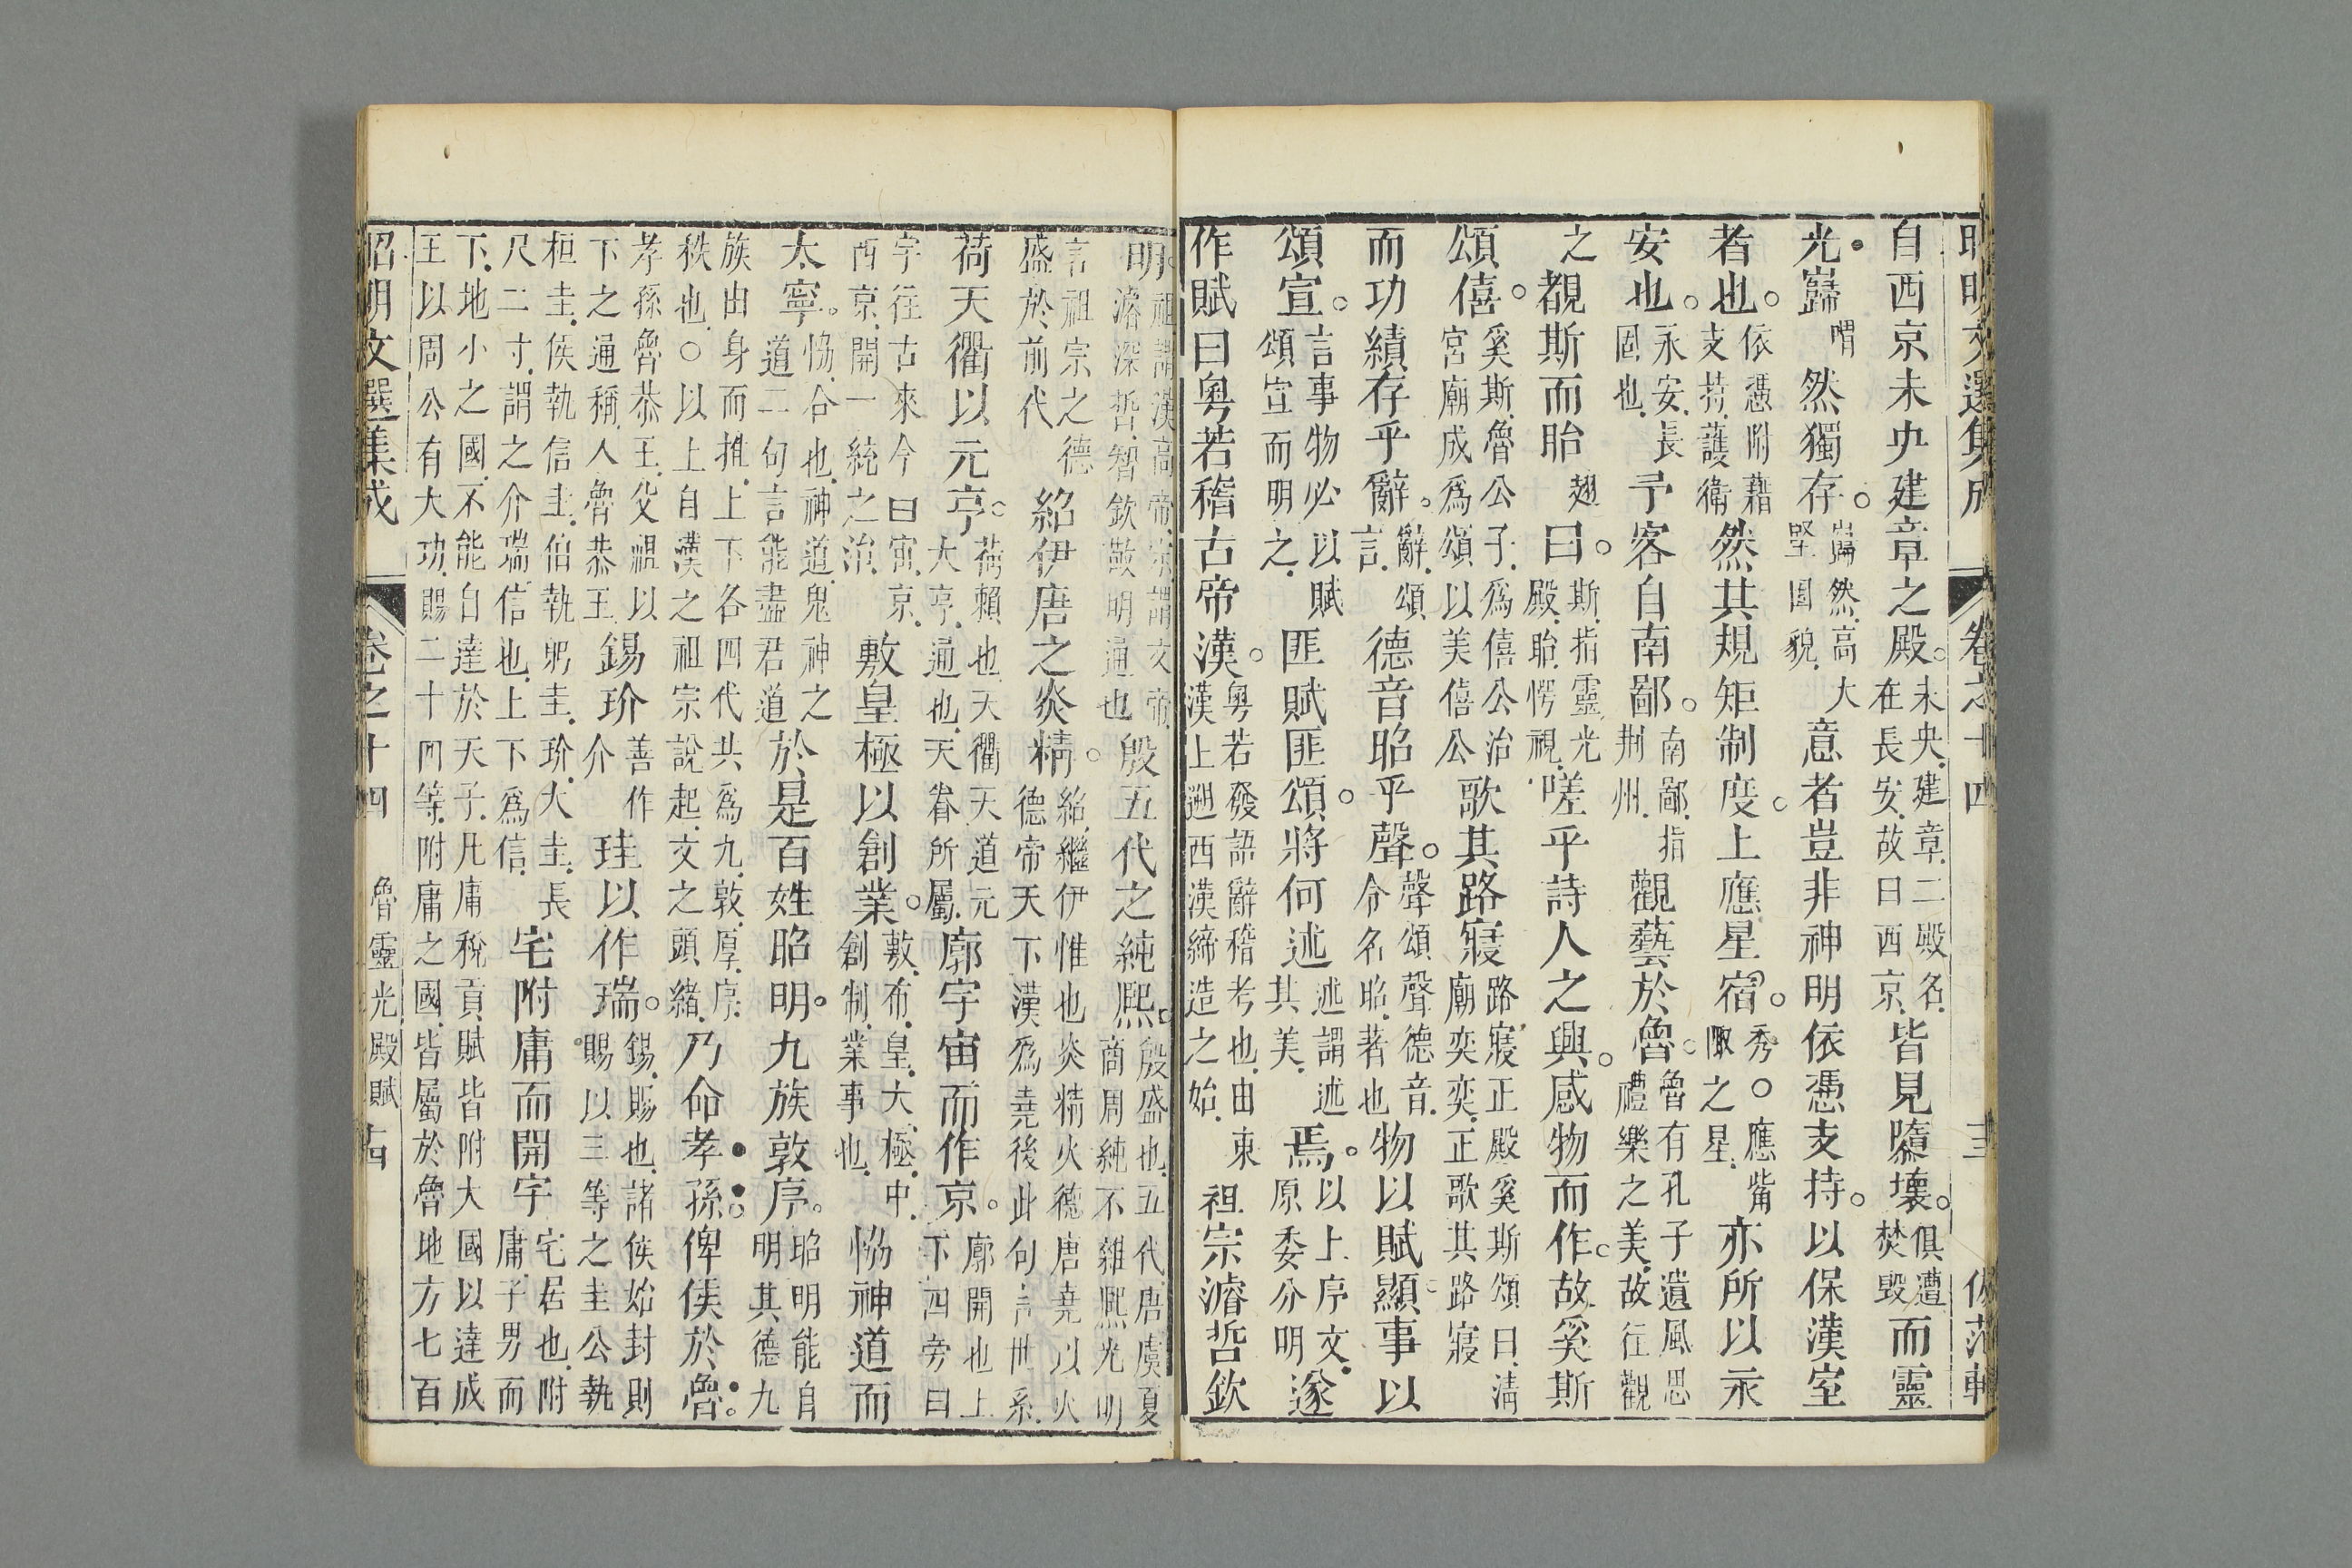 昭明文選集成 卷之十四 三
自西京未央建章之殿。未央、建章、二殿名、在長安、故曰西京、皆見隳壞。俱遭焚毀而靈
光巋喟然獨存。巋然、高大堅固貌、意者豈非神明依憑支持。以保漢室
者也。依憑附藉支持、護衛然其規矩制度。上應星宿。秀○應觜陬之星、亦所以永
安也。永安、長固也、予客自南鄙。南鄙、指荆州、觀藝於魯。魯有孔子遺風思禮樂之美、故往觀
之覩斯而眙翅曰。斯、指靈光殿、眙、愕視、嗟乎詩人之興。感物而作。故奚斯
頌僖。奚斯、魯公子、爲僖公治宮廟成爲頌以美僖公歌其路寢路寢正殿奚斯頌曰、淸廟奕奕、正歌其路寢
而功績存乎辭。辭、頌言、德音昭乎聲。聲頌聲德音、令名昭、著也物以賦顯。事以
頌宣。言事物必以賦頌宣而明之、匪賦匪頌。將何述述謂述其美、焉。以上序文、原委分明遂
作賦曰粤若稽古帝漢。粤若發語辭稽考也、由東漢上遡西漢締造之始、祖宗濬哲欽
明。祖謂漢高帝、宗謂文帝、濬深哲、智欽敬明通也殷五代之純熙。殷盛也、五代、唐虞夏商周純不雜熙光明
言祖宗之德盛於前代紹伊唐之炎精。紹、繼伊惟也炎精火德唐堯以火德帝天下漢爲堯後此句言世系、
荷天衢以元亨。荷賴也、天衢天道元大亨、通也、天眷所屬、廓宇宙而作京。廓開也上下四旁曰
宇往古來今曰宙、京、西京、開一統之治、敷皇極以創業。敷、布、皇、大、極、中、創制、業事也、協神道而
太寧。協、合也、神道、鬼神之道二句言能盡君道於是百姓昭明。九族敦序。昭明能自明其德九
族由身而推、上下各四代共爲九、敦、厚、序、秩也、○以上自漢之祖宗說起、文之頭緒、乃命孝孫。俾侯於魯。
孝孫魯恭王、父祖以下之通稱、人魯恭王、錫玠善作介珪以作瑞。錫、賜也、諸侯始封則賜以三等之圭公執
桓圭、侯執信圭、伯執躬圭、玠、大圭、長尺二寸、謂之介瑞信也、上下爲信、宅附庸而開宇宅居也、附庸、子男而
下、地小之國、不能自達於天子、凡庸稅貢、賦皆附大國以達成王以周公有大功、賜二十四等、附庸之國、皆屬於魯地方七百
昭明文選集成 卷之十四 魯靈光殿賦